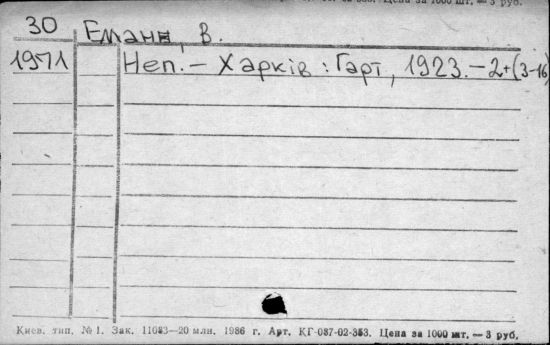 30
Еманн, В.
1971
Неп. – Харків : Гарт, 1923. – 2+(3-16)
Киев. тип. № 1. Зак. 11083—20 млн. 1986 г. Арт. КГ-087-02-353. Цена за 1000 шт. — 3 руб.